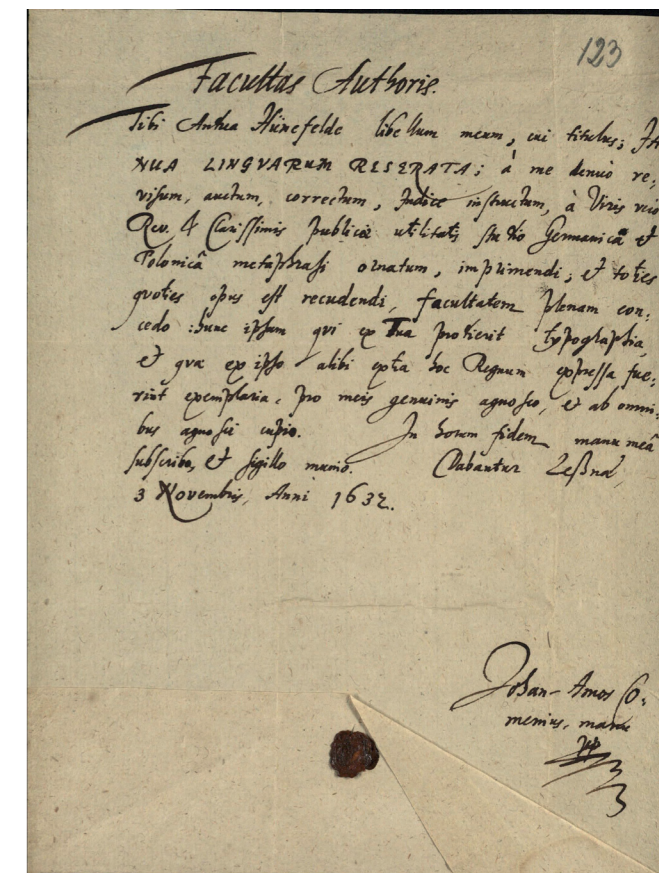 123
Facultas Authoris.
Tibi Andrea Hünefelde libellum meum, cui titulus; JA
NUA LINGVARUM RESERATA; à me denuò re,
visum, auctum, correctum, Indice instructum, à Viris verò
Rev. & Clarissimis publicæ utilitatis studio Germanicâ et
Polonicâ metaphrasi ornatum, imprimendi; et toties
quoties opus est recudendi, facultatem plenam con,
cedo: hunc ipsum qui ex Tua prodierit typographia,
et quæ ex ipso alibi extra hoc Regnum expressa fue,
rint exemplaria, pro meis genuinis agnosco, et ab omni,
bus agnosci cupio. In horum fidem manu meâ
subscribo, et sigillo munio. Dabantur Leßnæ,
3 Novembris, Anni 1632.
Johan-Amos Co,
menius, manu